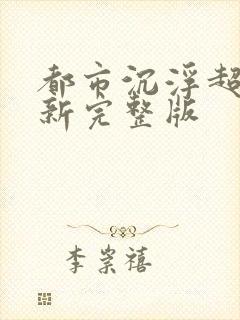 都市沉浮超
新完整版
李崇禧